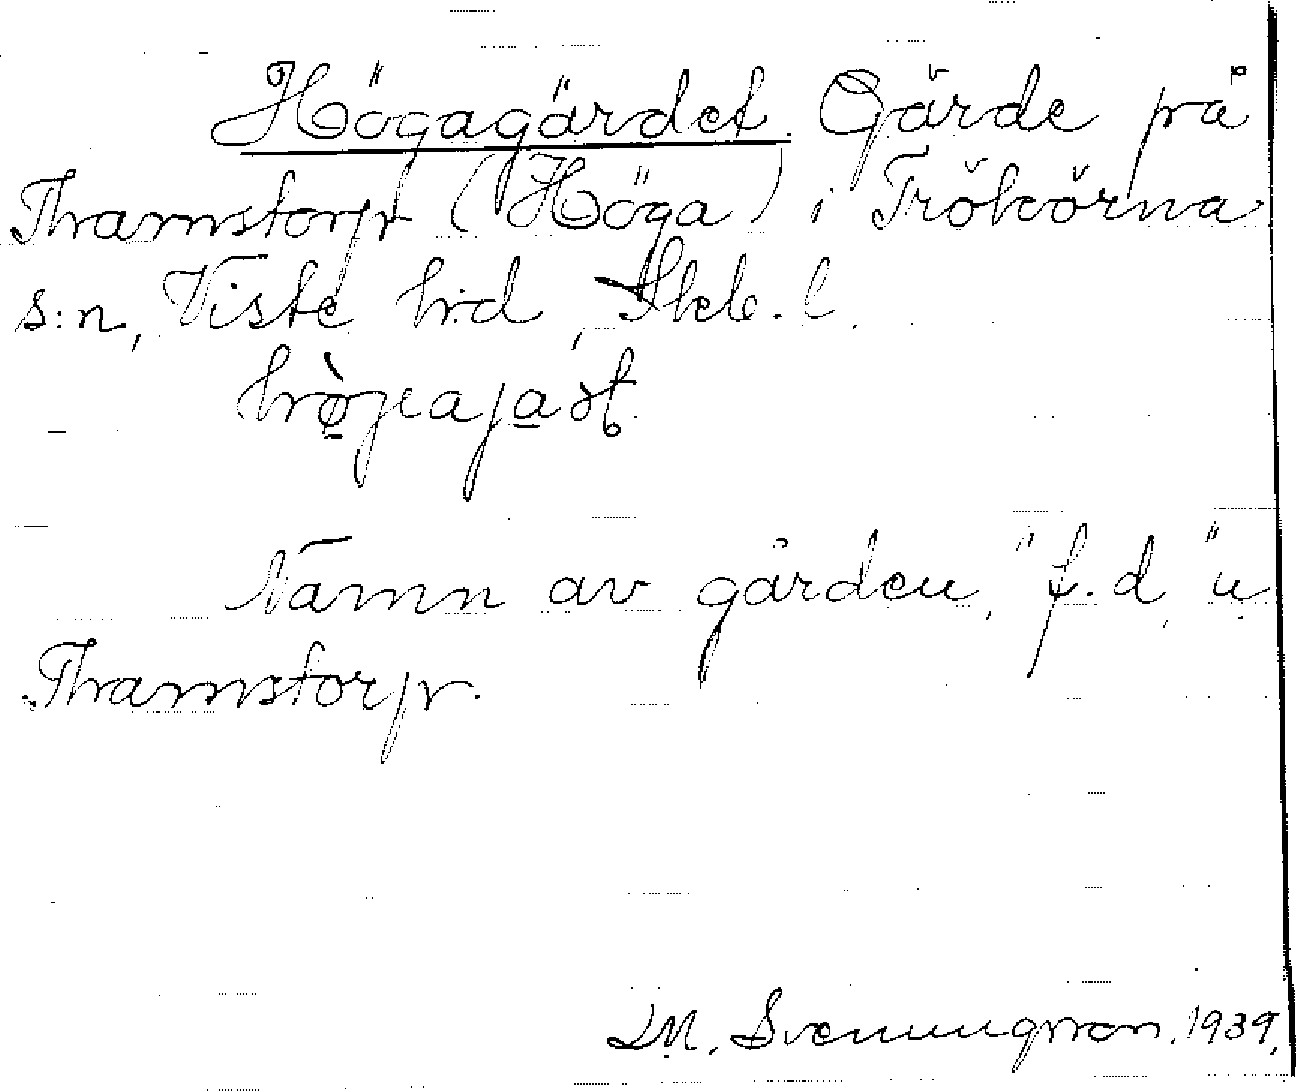 Högagärdet. Gärde på
Thamstorp (Höga) i Trökörna
s:n, Viste h:d, Skb. l.
Namn av gården, f.d. ö.
Thamstorp.
M. Svenungsson. 1939.